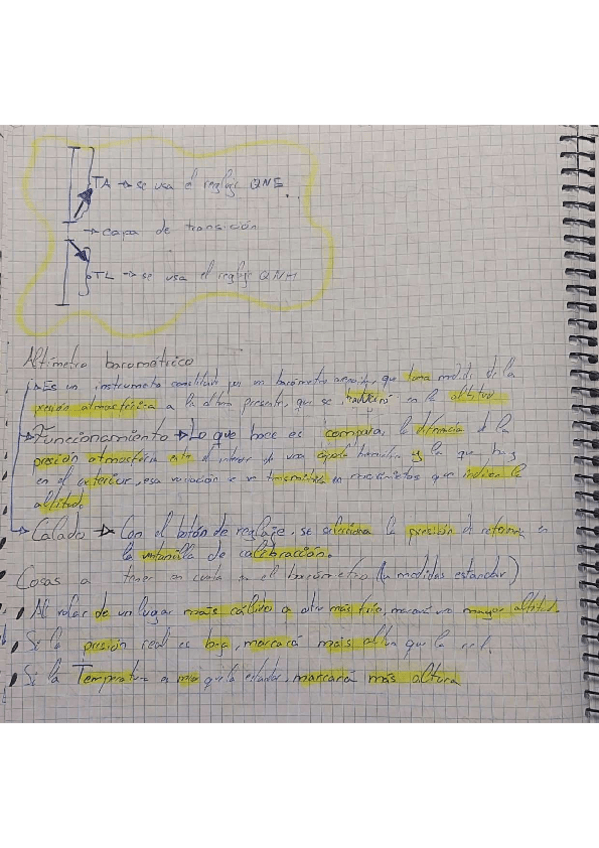 TA → se usa el reglaje QNE...
→ capa de transición
TL → se usa el reglaje QNH
Altímetro barométrico
→ Es un instrumento constituido por un barómetro aneroide que toma medida de la
presión atmosférica a la altura presente, que se traducirá en la altitud.
→ Funcionamiento → Lo que hace es compara, la diferencia de la
presión atmosférica entre el interior de una cápsula hermética y la que hay
en el exterior, esa variación se ve transmitida en que indican la
altitud.
→ Calado → Con el botón de reglaje, se selecciona la presión de referencia en
la ventanilla de calibracción.
Cosas a tener en cuenta en el barómetro (en medidas estandar)
Al volar de un lugar mais cálido a otro mais frío, marcará una mayor altitud.
Si la presión real es baja, marcará mais altura que la real.
Si la Temperatura es más que la estandar, marcará más altura